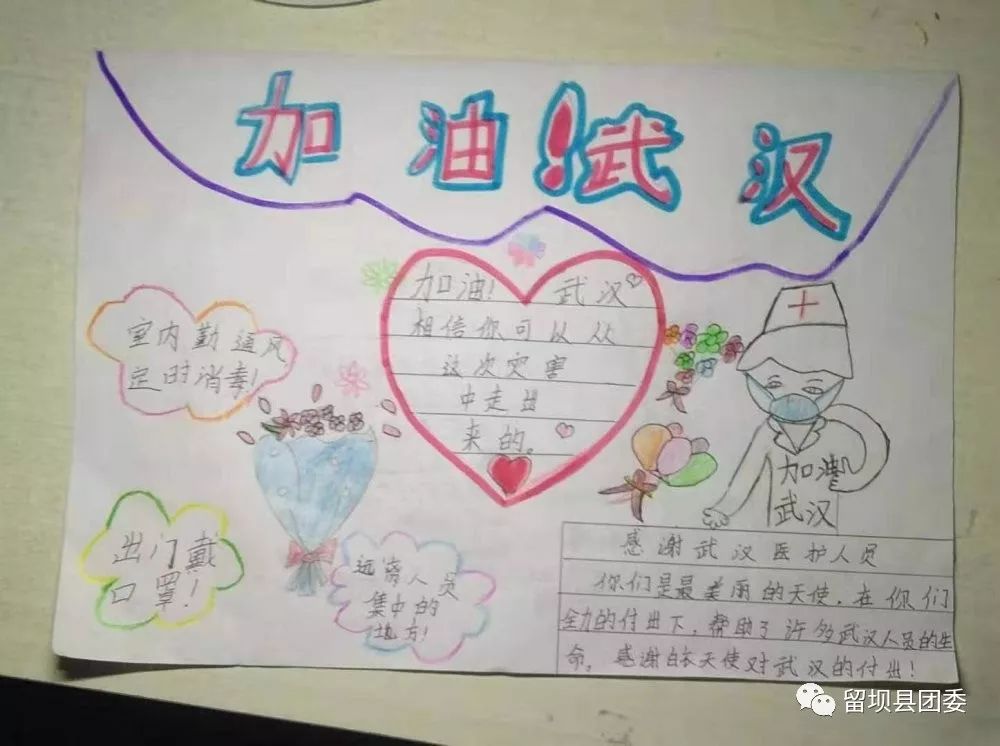 加油!武汉
加油! 武汉
相信你可以从
这次灾害
中走出
来的。
室内勤通风
定时消毒!
出门戴
口罩!
远离人员
集中的
地方!
加油
武汉
感谢武汉医护人员
你们是最美丽的天使,在你们
全力的付出下,帮助了许多武汉人员的生
命。感谢白衣天使对武汉的付出!
留坝县团委